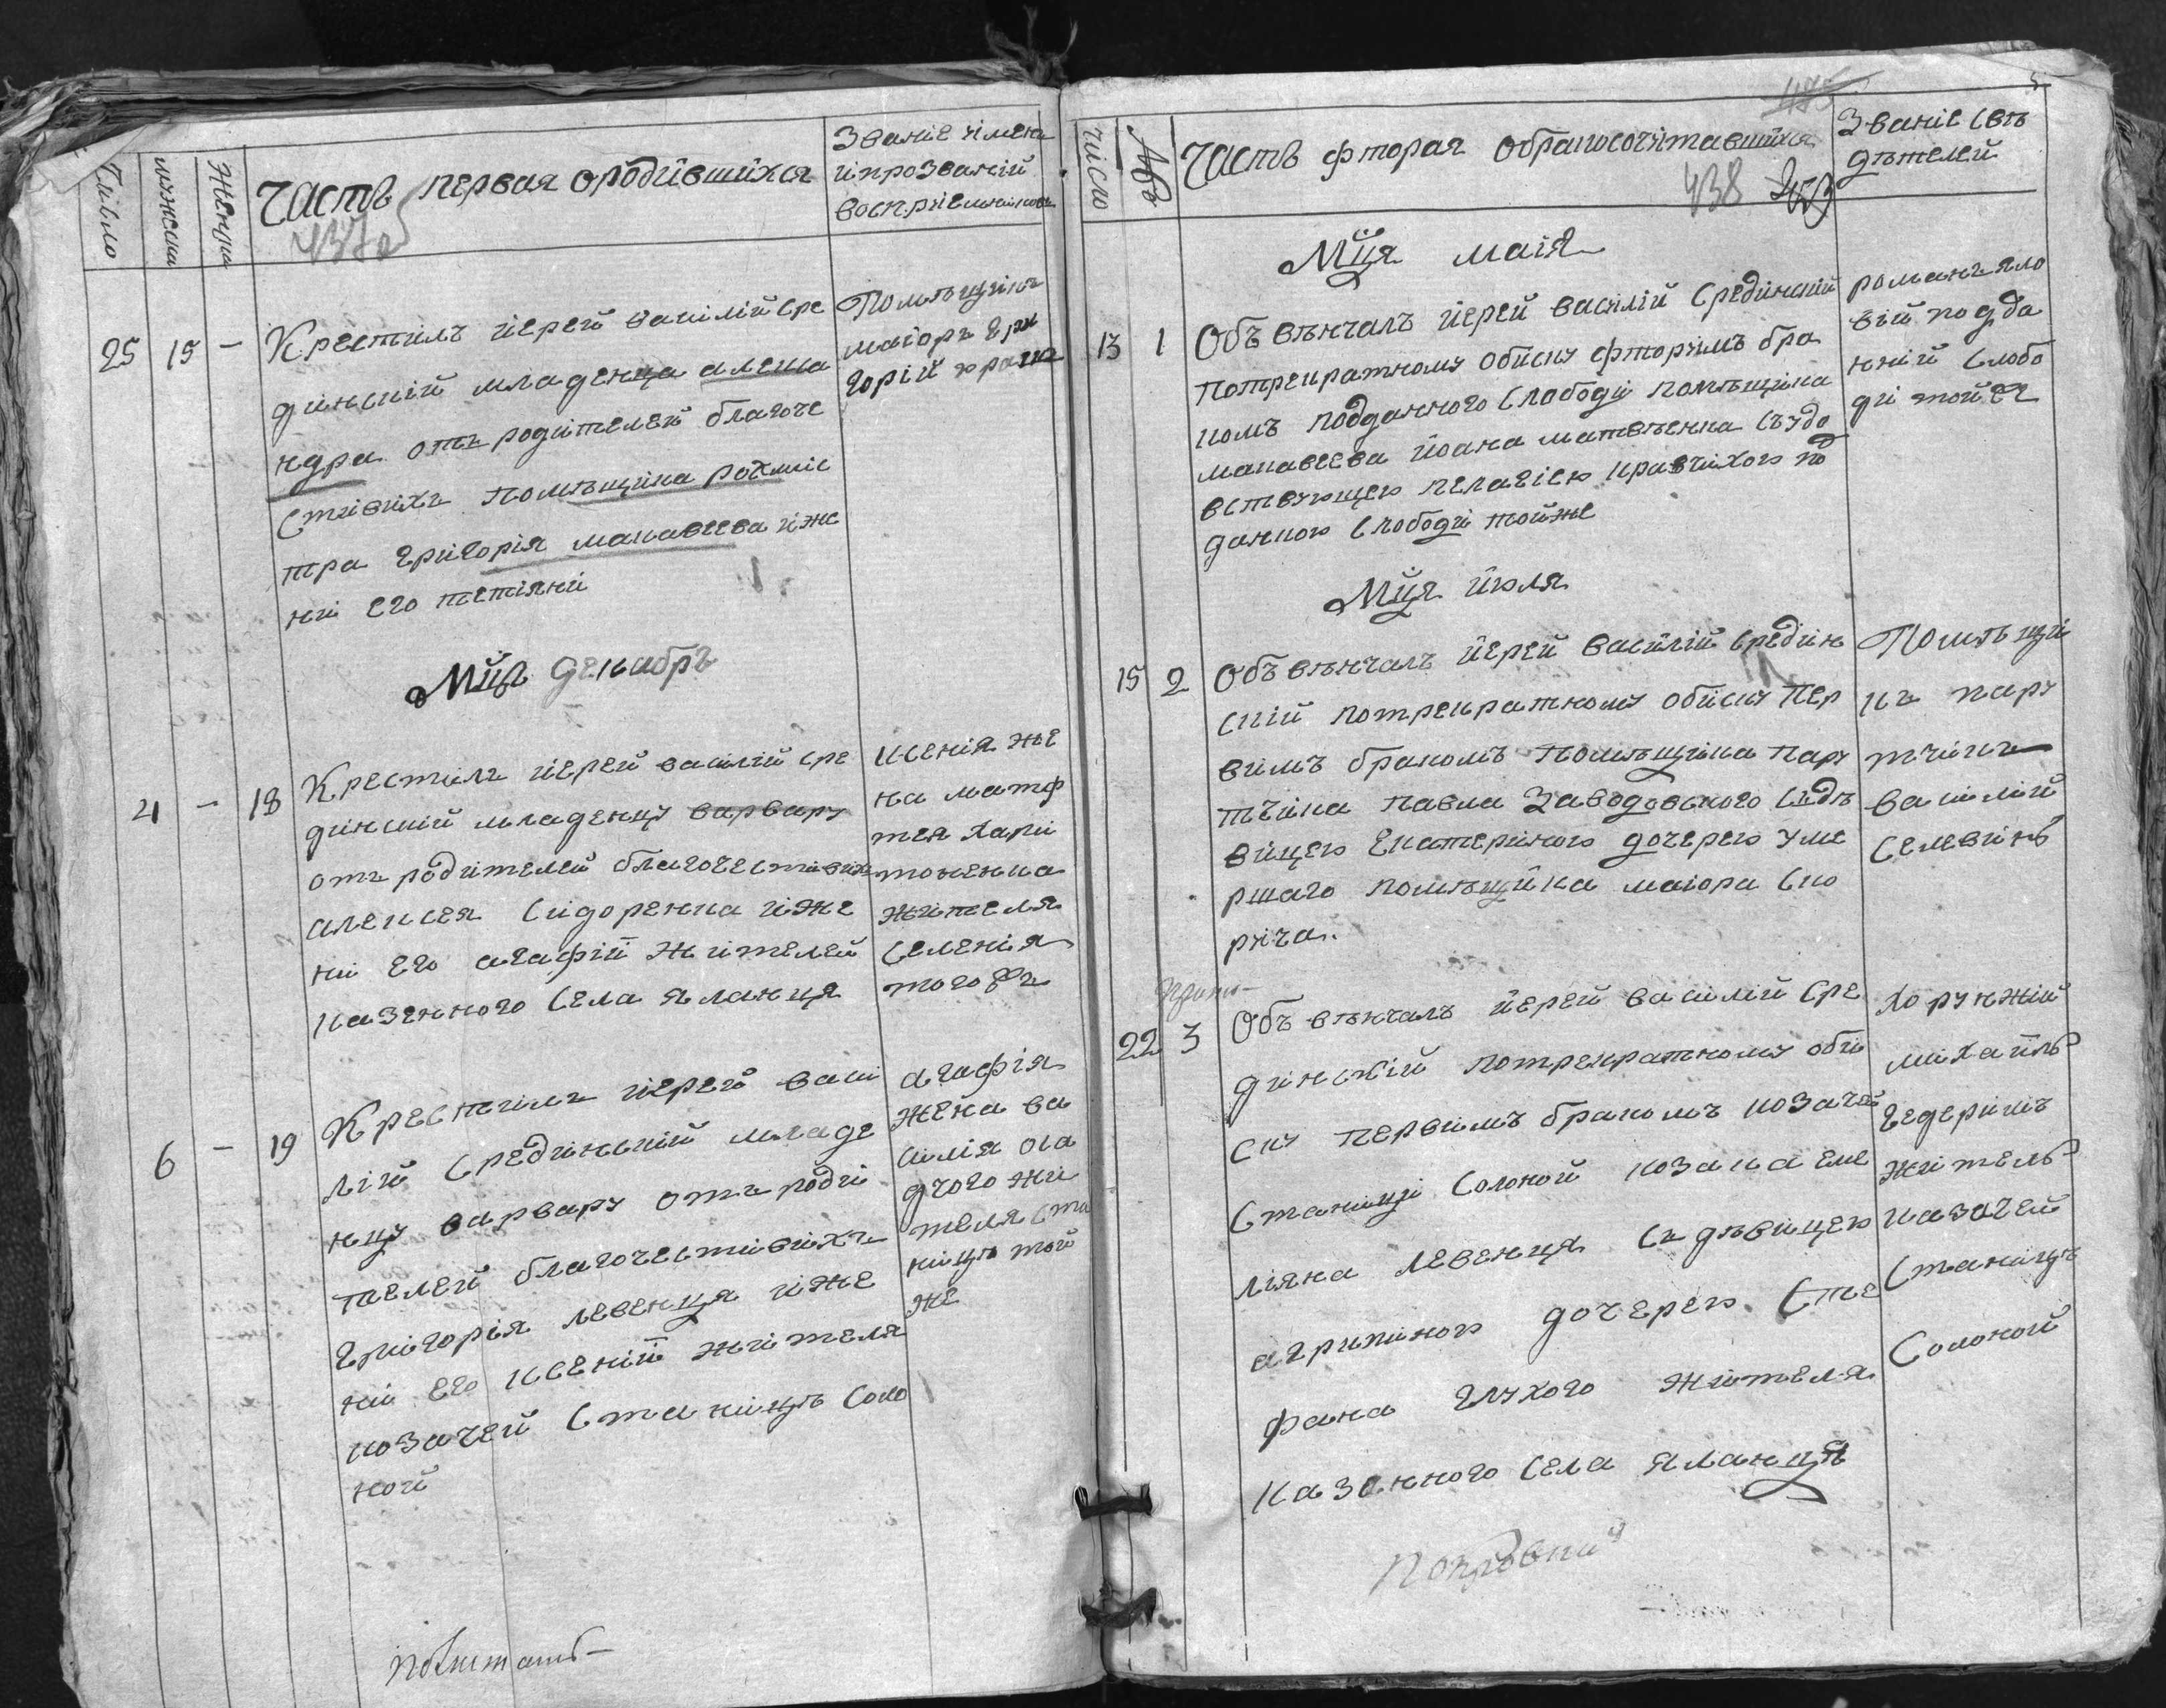 Число
мужеска
Женска
Часть первая ородившихся
Званіе имен
ипрозваній
воспріемников
437
25 15 — Крестилъ іерей василій сре
динскій младенца алекса
ндра отъ родителей благоче
стивихъ помѣщика рохмис
тра григорія макавеева иже
ни его тетіяни
Помѣщикъ
маіоръ гри
горій
Мця декабръ
4 — 18 Крестилъ іерей василій сре
динскій младенцу варвару
отъ родителей благочестивихъ
алексея сидоренка иже
ни его агафіи жителей
казенного села яланця
ксенія же
на матф
тея хари
тоненка
жителя
селенія
того жъ
6 — 19 Крестилъ іерей васи
лій средински младе
нцу варвару отъ роди
телей благочестивихъ
григорія левенця иже
ни его ксеніи жителя
козачей станицѣ соло
ной
агафія
жена ва
силія оса
дчого жи
теля ста
ницѣ той
же
число
№
Часть фторая обракосочитавшихся
Званіе свѣ
дѣтелей
438
Мця маія
13 1 Объвѣнчалъ іерей василій срединскій
потрекратному обиску фторимъ бра
комъ подданного слободи помѣщика
макавеева іоана матвѣенка съудо
вствующею пелагіею кравчихою по
данною слободи тойже
романъ яло
вій подда
нній слобо
ди той жъ
Мця іюля
15 2 Объвѣнчалъ іерей василій средин
скій потрекратному обиску пер
вимъ бракомъ помѣщика пару
тчика павла Заводовского съдѣ
вицею екатериною дочерею уме
ршаго помѣщика маіора ско
рича.
Помѣщи
къ пару
тчикъ
василій
селевинъ
22 3 Объвѣнчалъ іерей василій сре
динскій потрекратному оби
ску первимъ бракомъ козачей
станици солоной козака еме
ліяна левенця съ дѣвицею
агрипиною дочерею сте
фана глухого жителя
казенного села яланця
хорунжій
михаилъ
житель
казачей
станицѣ
солоной